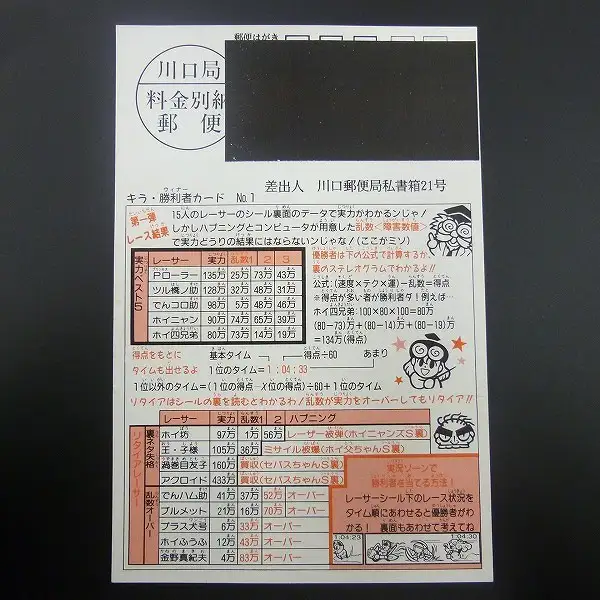 郵便はがき
川口局
料金別納
郵便
差出人 川口郵便局私書箱21号
キラ・勝利者カード No.1
第一弾
レース結果
15人のレーサーのシール裏面のデータで実力がわかるンじゃ!
しかしハプニングとコンピュータが用意した乱数<障害数値>
で実力どうりの結果にはならないンじゃな!(ここがミソ)
実力ベスト5
レーサー 実力 乱数1 2 3
Pローラー 135万 25万 73万 43万
ツル橋ノ助 128万 32万 48万 31万
でんコロ助 98万 5万 48万 46万
ホイニャン 90万 74万 65万 39万
ホイ四兄弟 80万 73万 14万 19万
優勝者は下の公式で計算するか、
裏のステレオグラムでわかるよ!!
公式:(速度×テク×運)−乱数=得点
※得点が多い者が勝利者ゲ!例えば…
ホイ四兄弟:100×100×80=80万
(80−73万)+(80−14万)+(80−19万)
=134万(得点)
得点をもとに
タイムも出せるよ
基本タイム 得点÷60 あまり
1位のタイム=1:04:33
1位以外のタイム=(1位の得点−X位の得点)÷60+1位のタイム
リタイアはシールの裏を読むとわかるわ!乱数が実力をオーバーしてもリタイア!!
リタイアレーサー
裏ネタ失格
乱数オーバー
レーサー 実力 乱数1 2 ハプニング
ホイ坊 97万 1万 56万 レーザー被弾(ホイニャンズS裏)
王・子様 105万 36万 ミサイル被爆(ホイ父ちゃんS裏)
渦巻目友子 160万 買収(セバスちゃんS裏)
アクロイド 433万 買収(セバスちゃんS裏)
でんハム助 41万 37万 52万 オーバー
ブルメット 21万 16万 70万 オーバー
プラス犬号 6万 33万 オーバー
ホイふうふ 12万 43万 オーバー
金野真紀夫 4万 83万 オーバー
実況ゾーンで
勝利者を当てる方法!
レーサーシール下のレース状況を
タイム順にあわせると優勝者がわ
かる! 裏面もあわせて考えてね
1:04:23 1:04:30